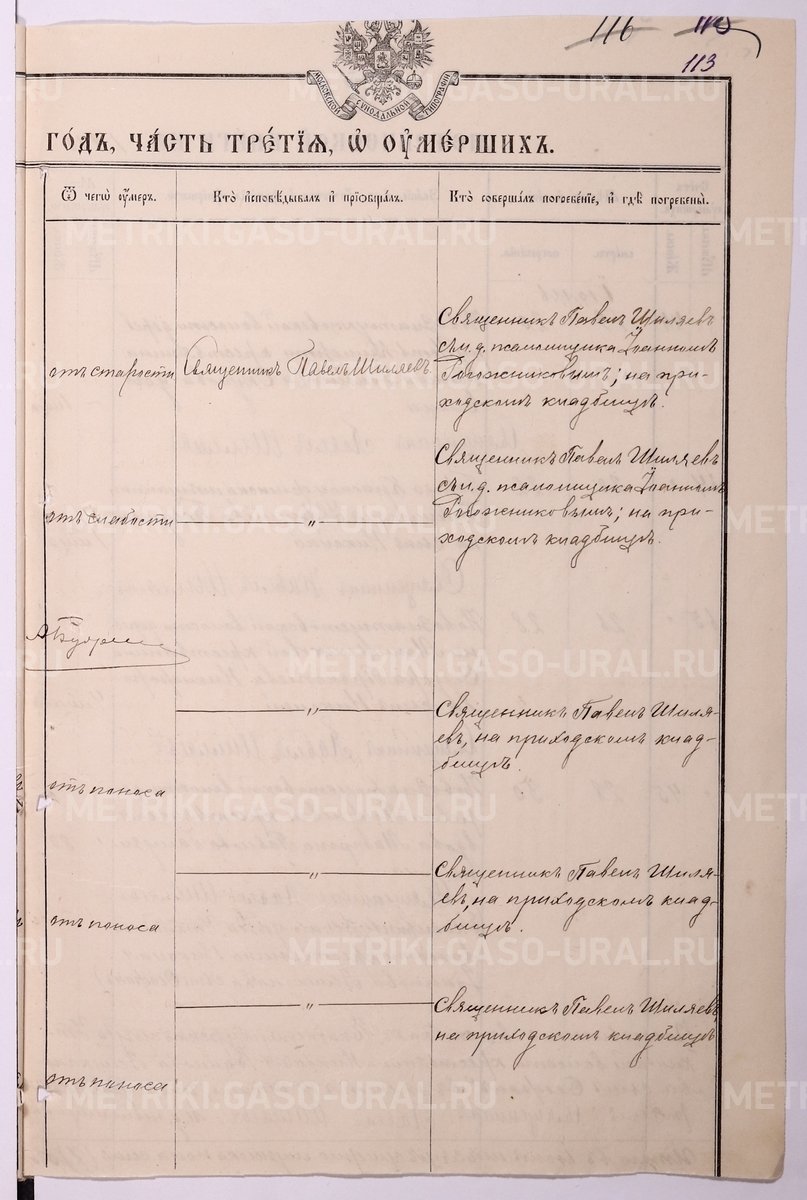 116
113
МОСКОВСКОЙ СѴНОДАЛЬНОЙ ТИПОГРАФІИ
ГО́ДЪ, ЧА́СТЬ ТРЕ́ТІѦ, Ѽ ОУ҆МЕ́РШИХЪ.
Ѿ чегѡ̀ ᲂу҆́меръ.
Кто̀ и҆сповѣ́дывалъ и҆ прїѡбща́лъ.
Кто̀ соверша́лъ погребе́нїе, и҆ гдѣ̀ погребены̀.
отъ старости
Священникъ Павелъ Шиляевъ.
Священникъ Павелъ Шиляевъ
съ и. д. псаломщика Іоанномъ
Рогожниковымъ; на при-
ходскомъ кладбищѣ.
отъ слабости
"
Священникъ Павелъ Шиляевъ
съ и. д. псаломщика Іоанномъ
Рогожниковымъ; на при-
ходскомъ кладбищѣ.
отъ поноса
"
Священникъ Павелъ Шиля-
евъ, на приходскомъ клад-
бищѣ.
отъ поноса
"
Священникъ Павелъ Шиля-
евъ, на приходскомъ клад-
бищѣ.
отъ поноса
"
Священникъ Павелъ Шиляевъ,
на приходскомъ кладбищѣ
METRIKI.GASO-URAL.RU